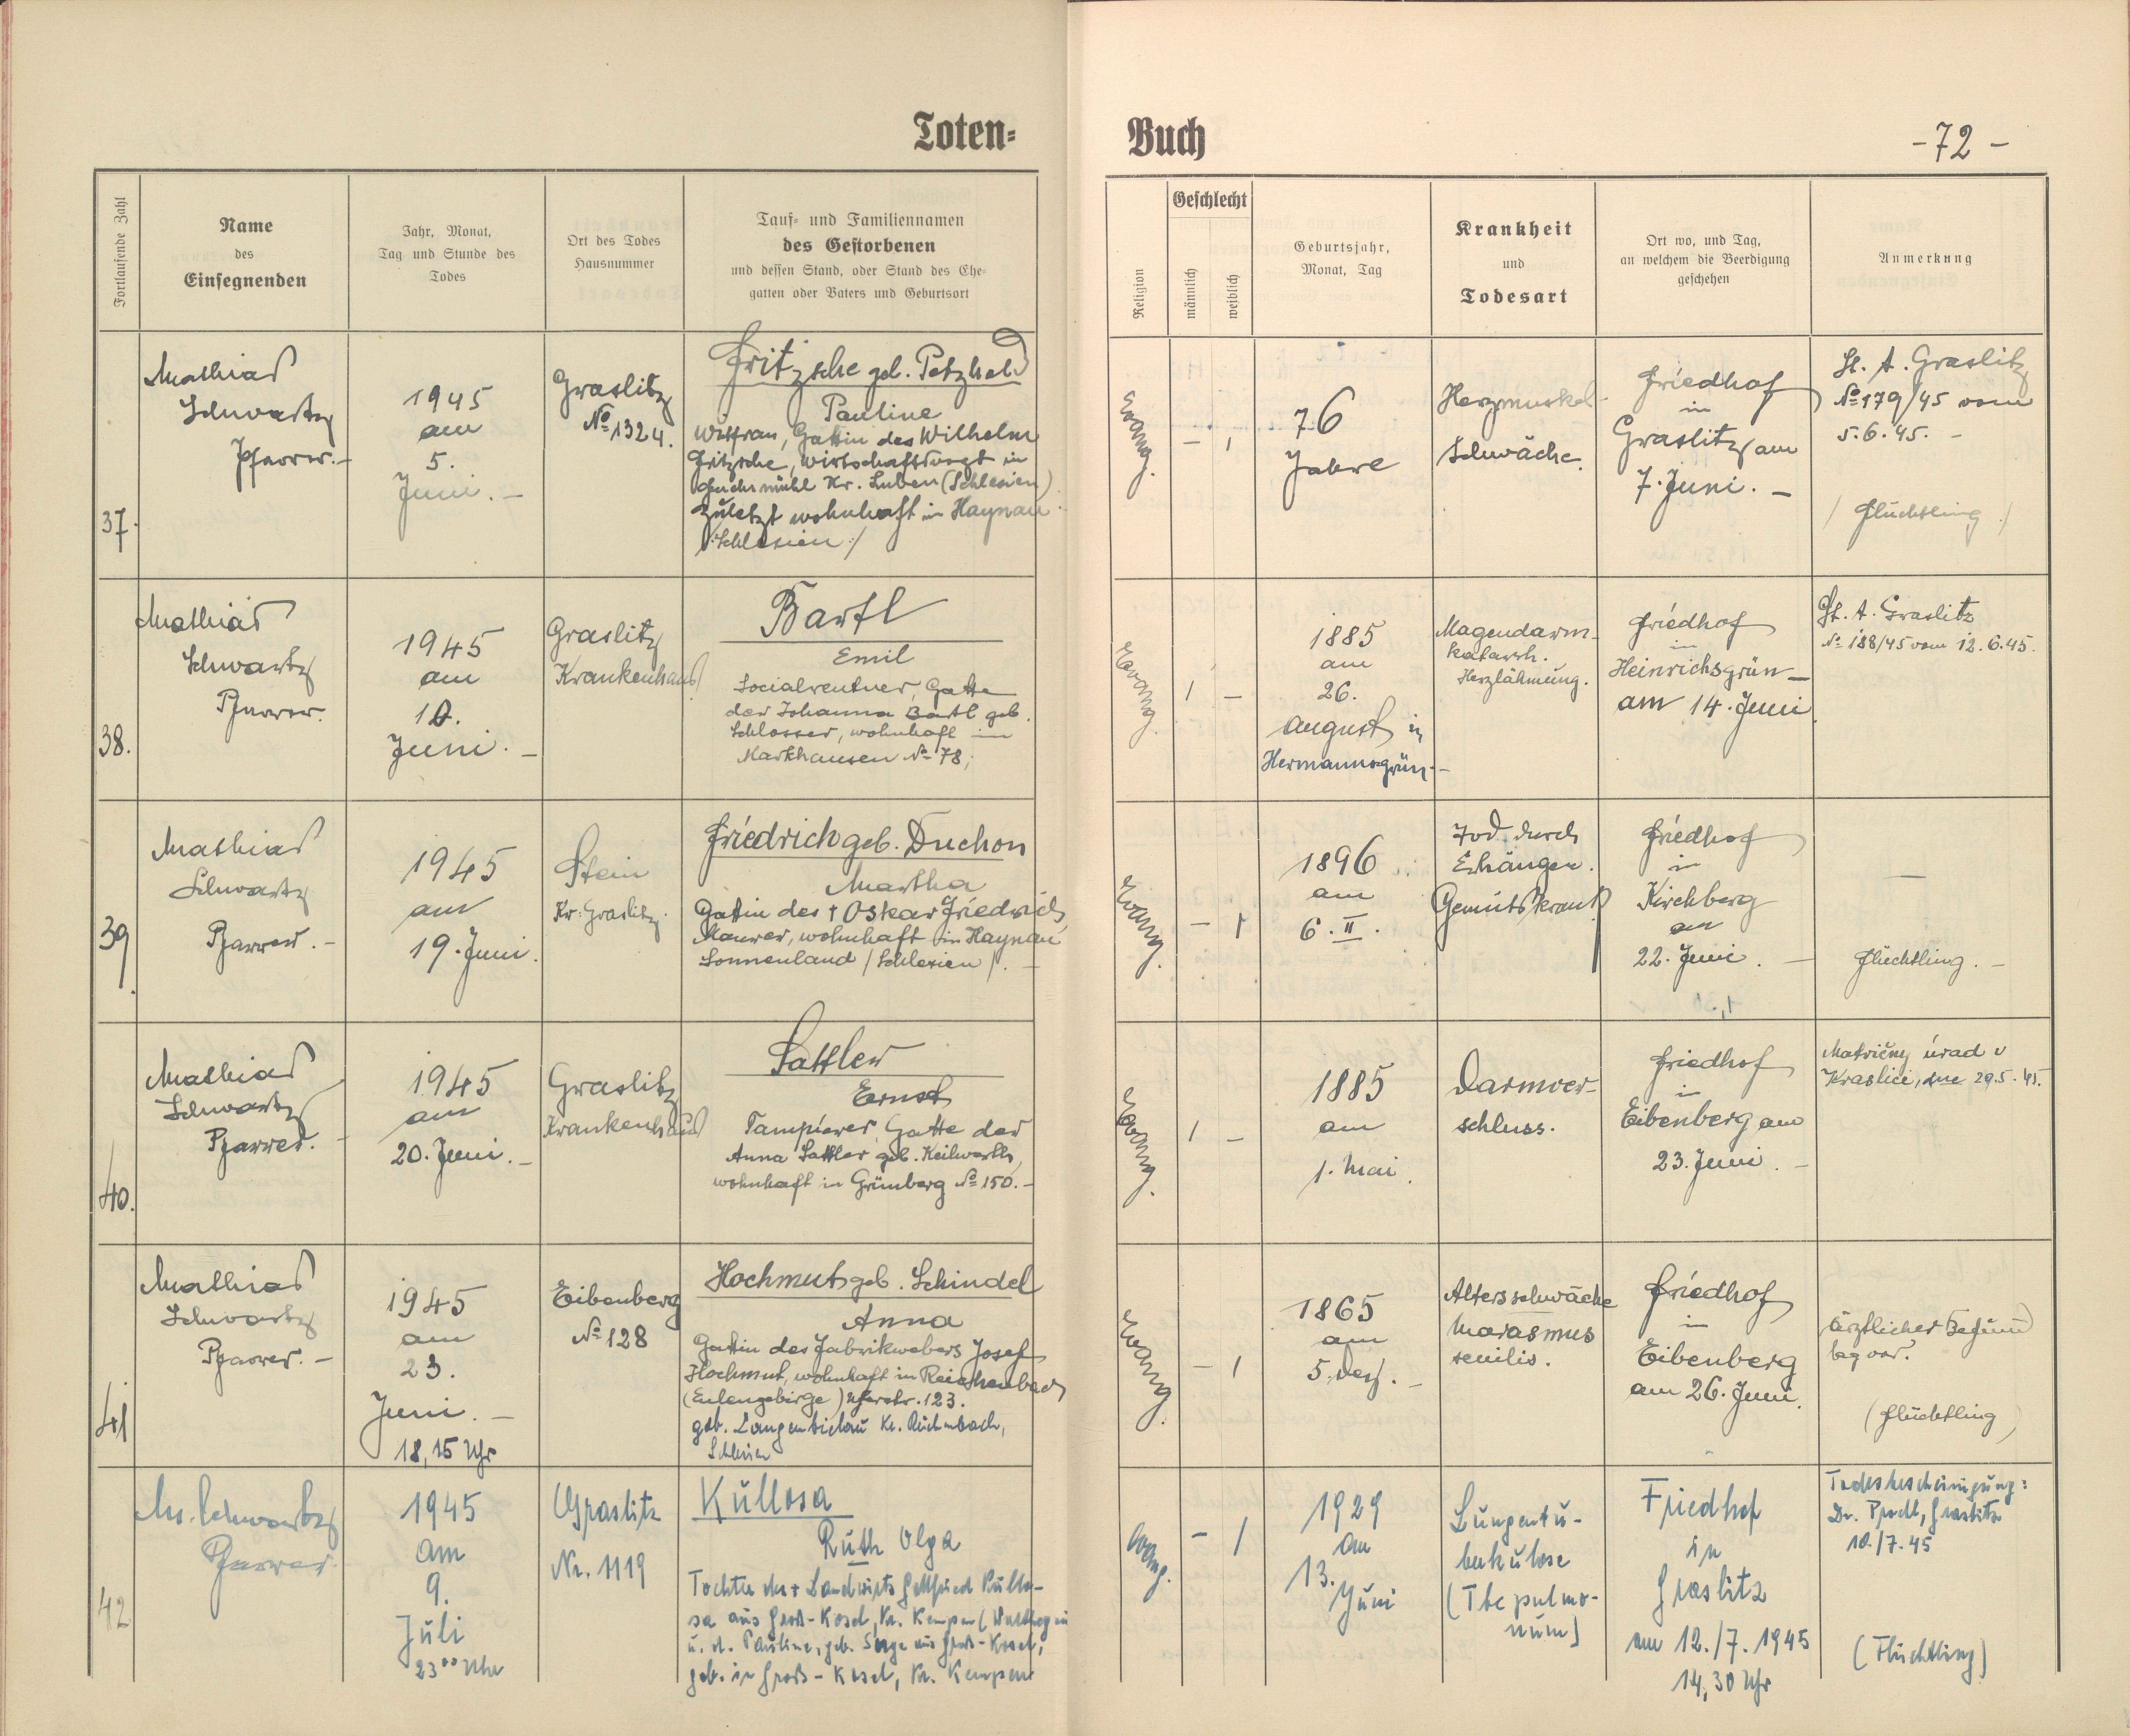 Toten=
Buch
-72-
Fortlaufende Zahl
Name
des
Einsegnenden
Jahr, Monat,
Tag und Stunde des
Todes
Ort des Todes
Hausnummer
Tauf= und Familiennamen
des Gestorbenen
und dessen Stand, oder Stand des Ehe=
gatten oder Vaters und Geburtsort
Religion
Geschlecht
männlich
weiblich
Geburtsjahr,
Monat, Tag
Krankheit
und
Todesart
Ort wo, und Tag,
an welchem die Beerdigung
geschehen
Anmerkung
37.
Mathias
Schwartz
Pfarrer.-
1945
am
5.
Juni.-
Graslitz
No 1324.
Fritzsche geb. Petzhold
Pauline
Witfrau, Gattin des Wilhelm
Fritzsche, Wirtschaftsvogt in
Kr. Luben (Schlesien)
zuletzt wohnhaft in Haynau
/:Schlesien:/
Evang.
- 1
76
Jahre
Herzmuskel-
Schwäche.
Friedhof
in
Graslitz am
7. Juni.-
St. A. Graslitz
No 179/45 vom
5.6.45.-
/ Flüchtling./
38.
Mathias
Schwartz
Pfarrer.
1945
am
10.
Juni.-
Graslitz
Krankenhaus
Bartl
Emil
Socialrentner, Gatte
der Johanna Bartl geb.
Schlosser, wohnhaft in
Markhausen No 78;
Evang.
1 -
1885
am
26.
August in
Hermannsgrün.-
Magendarm-
katarrh.
Herzlähmung.
Friedhof
in
Heinrichsgrün-
am 14. Juni
St. A. Graslitz
No 188/45 vom 12.6.45.
39.
Mathias
Schwartz
Pfarrer.-
1945
am
19. Juni.
Stein
Kr: Graslitz.
Friedrich geb. Duchon
Martha
Gattin des † Oskar Friedrich
Maurer, wohnhaft in Haynau
Sonnenland / Schlesien /.-
Evang.
- 1
1896
am
6. II.
Tod durch
Erhängen.
Gemütskrank
Friedhof
in
Kirchberg
am
22. Juni.-
-
Flüchtling.-
40.
Mathias
Schwartz
Pfarrer.-
1945
am
20. Juni.-
Graslitz
Krankenhaus
Sattler
Ernst
Tampierer, Gatte der
Anna Sattler geb. Keilwerth,
wohnhaft in Grünberg No 150.-
Evang.
1 -
1885
am
1. Mai.
Darmver-
schluss.
Friedhof
in
Eibenberg am
23. Juni.-
Matričny úrad v
Kraslici, dne 29.5.45.
41
Mathias
Schwartz
Pfarrer.-
1945
am
23.
Juni.-
18,15 Uhr
Eibenberg
No 128
Hochmut geb. Schindel
Anna
Gattin des Fabrikwebers Josef
Hochmut, wohnhaft in Reichenbach
(Eulengebirge) Uferstr. 123.
geb. Langenbielau Kr. Reichenbach,
Schlesien
Evang.
- 1
1865
am
5. Dez.-
Altersschwäche
Marasmus
senilis.
Friedhof
in
Eibenberg
am 26. Juni.
Ärztlicher Befund
lag vor.
(Flüchtling)
42
M. Schwartz
Pfarrer.
1945
am
9.
Juli
23°° Uhr
Graslitz
Nr. 1119
Kullosa
Ruth Olga
Tochter des † Landwirts Gottfried Kullo-
sa aus Groß-Kosel, Kr. Kempen
u. d. Pauline, geb. Sorge aus Groß-Kosel,
geb. in Groß-Kosel, Kr. Kempen
evang.
- 1
1929
am
13.
Juni
Lungentu-
berkulose
(Tbc pulmo-
num)
Friedhof
in
Graslitz
am 12./7.1945
14,30 Uhr
Todesbescheinigung:
Graslitz
10./7.45
(Flüchtling)